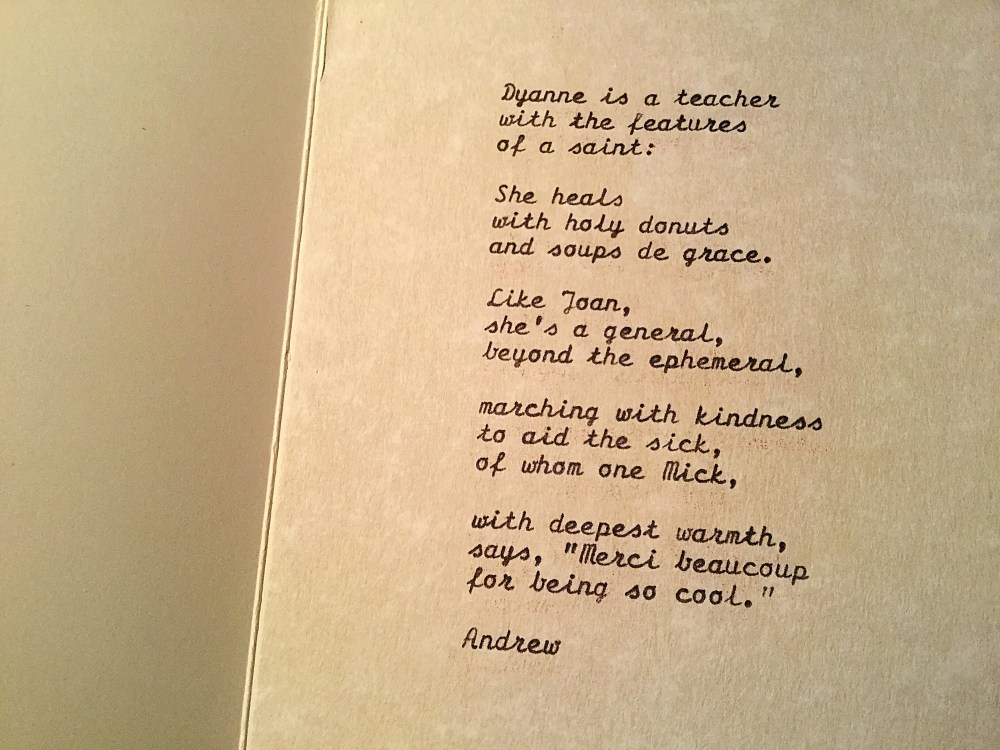 Dyanne is a teacher
with the features
of a saint:
She heals
with holy donuts
and soups de grace.
Like Joan,
she's a general,
beyond the ephemeral,
marching with kindness
to aid the sick,
of whom one Mick,
with deepest warmth,
says, "Merci beaucoup
for being so cool."
Andrew